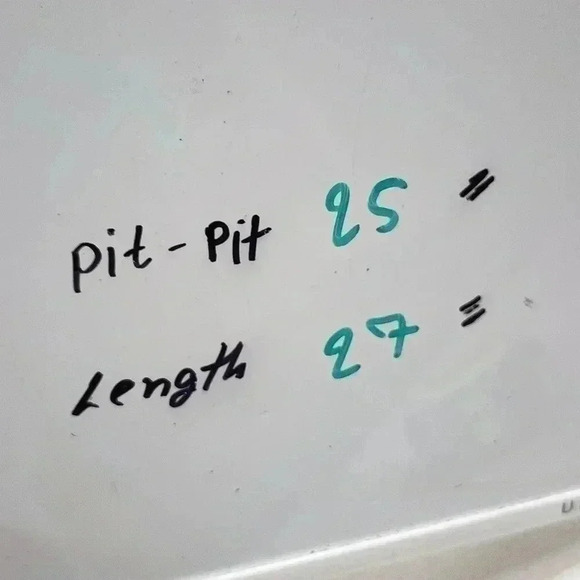 Pit - Pit 25 "
Length 27 "